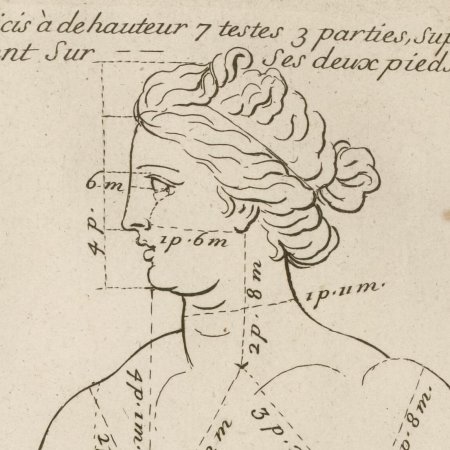 icis à de hauteur 7 testes 3 parties, Sup
ent Sur — — Ses deux pieds
6 m
4 p.
1 p. 6 m
2 p. 8 m
1 p. 11 m.
4 p. 1 m.
3 p.
m
m.